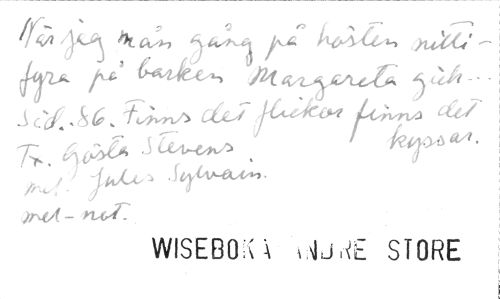 När jag mån gång på hösten nitti-
fyra på barken Margareta gick...
Sid. 86. Finns det flickor finns det
kyssar.
Tx. Gösta Stevens
mel. Jules Sylvain.
mel-not.
WISEBOKA ANDRE STORE